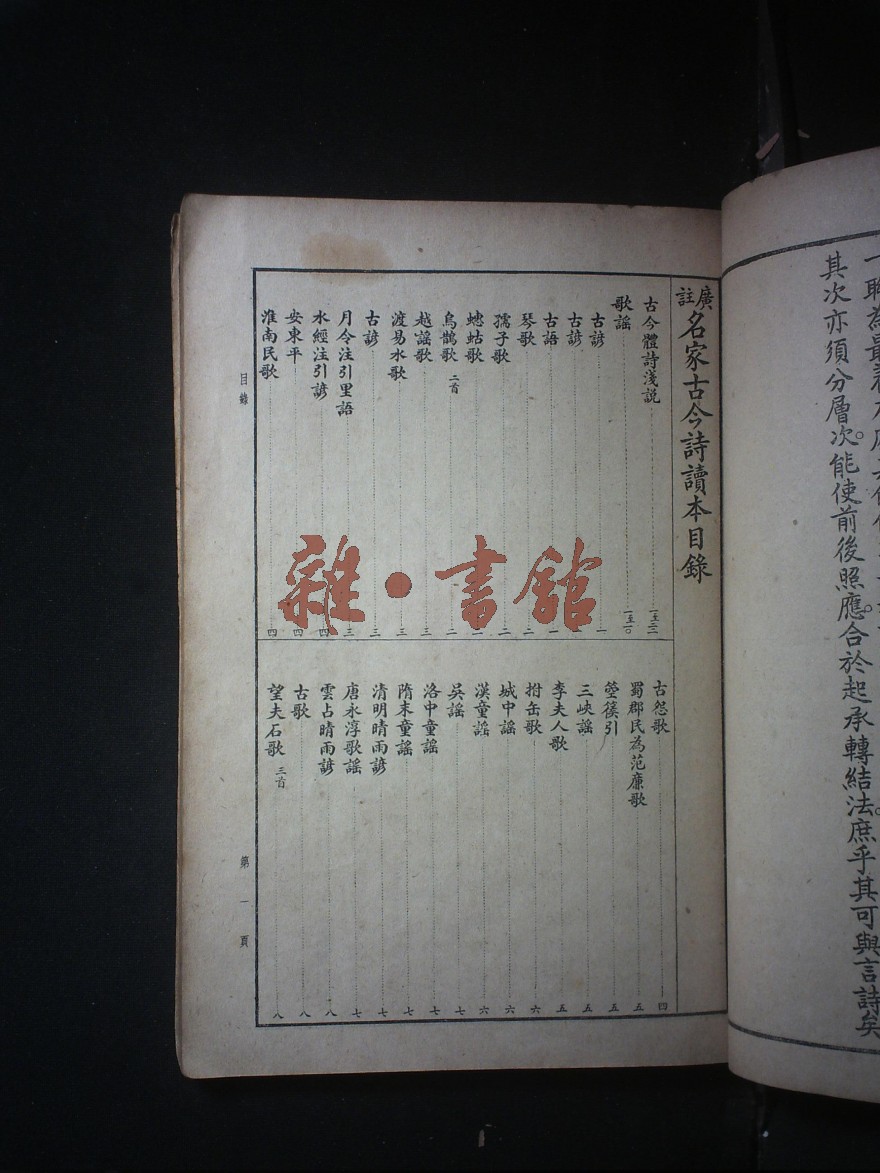 其次亦須分層次。能使前後照應。合於起承轉結法。庶乎其可與言詩矣
廣註名家古今詩讀本目錄
古今體詩淺説 一至三二
歌謠 一至一〇
古諺 一
古諺
古語 一
琴歌 二
孺子歌 二
蟪蛄歌
烏鵲歌 二首 二
越謠歌 三
渡易水歌 三
古諺 三
月令注引里語 三
水經注引諺 四
安東平 四
淮南民歌 四
古怨歌 四
蜀郡民為范廉歌 五
箜篌引 五
三峽謠 五
李夫人歌 五
拊缶歌 六
城中謠 六
漢童謠 六
吳謠 七
洛中童謠 七
隋末童謠 七
清明晴雨諺 七
唐永淳歌謠 七
雲占晴雨諺 八
古歌 八
望夫石歌 三首 八
目錄
第一頁
雜·書館